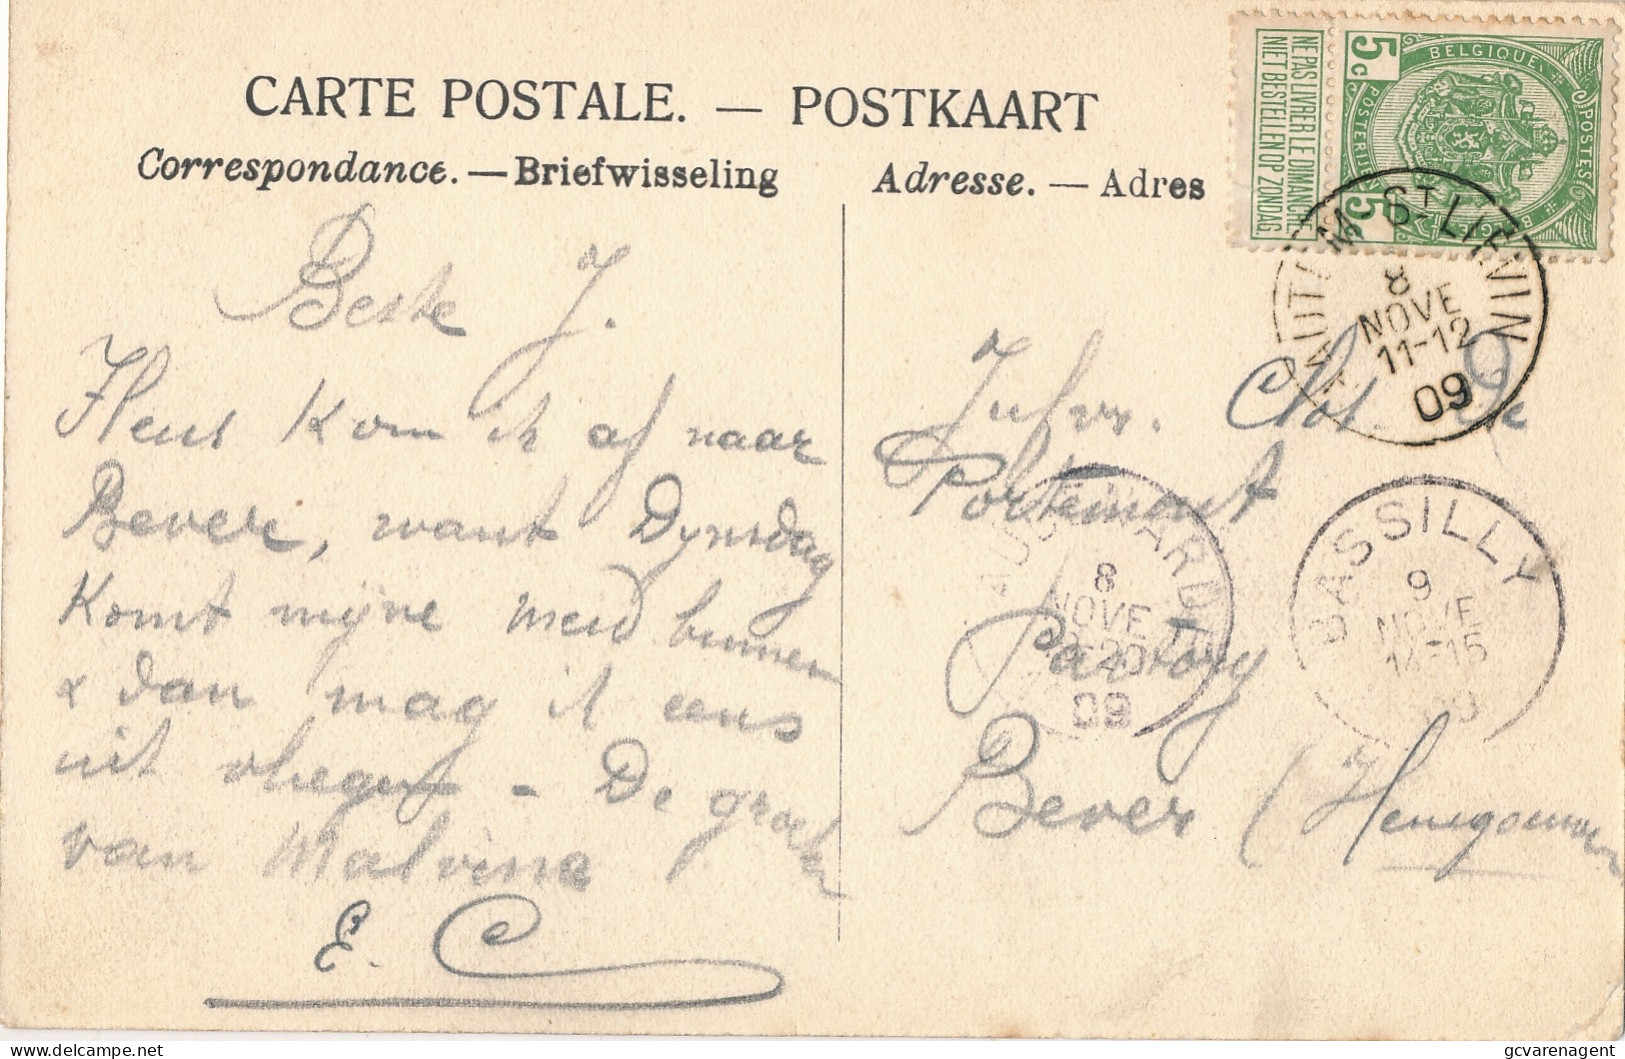 CARTE POSTALE. — POSTKAART
Correspondance. — Briefwisseling
Adresse. — Adres
NE PAS LIVRER LE DIMANCHE
NIET BESTELLEN OP ZONDAG
5 c BELGIQUE 
POSTES POSTERIJEN
BELGIË 5 c
HAUTEM-ST-LIEVIN
8
NOVE
11-12
09
Beste J.
Heus kom ik af naar
Bever, want Dynsdag
komt mijne meid binnen
& dan mag ik eens
uit
- De groeten
van Malvina
E. C.
Jufvr. Clot. De
Portemont
Pastory
Bever (Henegouwen
8
NOVE
20
09
BASSILLY
9
NOVE
14-15
09
gcvarenagent